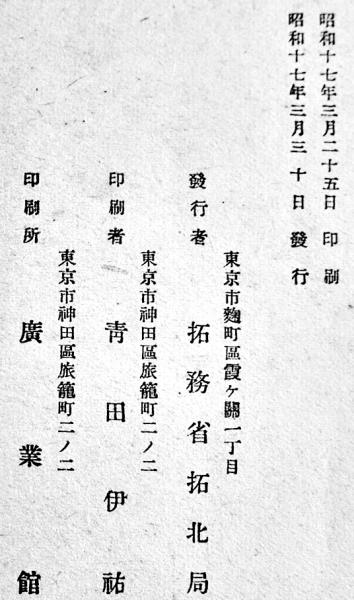 昭和十七年三月二十五日 印刷
昭和十七年三月三十日 發行
東京市麴町區霞ヶ關一丁目
發行者 拓務省拓北局
東京市神田區旅籠町二ノ二
印刷者 靑田伊祐
東京市神田區旅籠町二ノ二
印刷所 廣業館